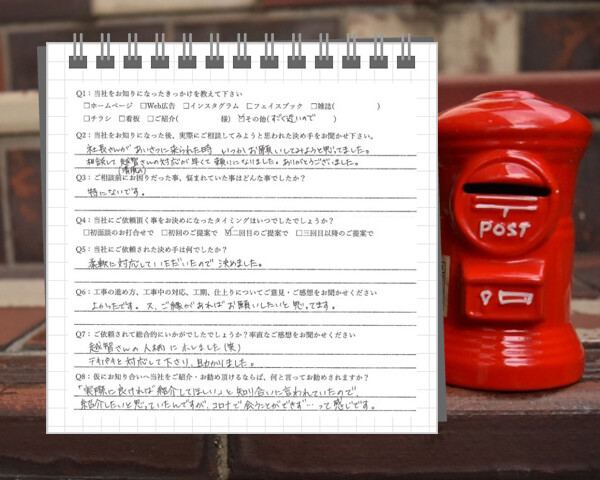 Q1：当社をお知りになったきっかけを教えて下さい
□ホームページ □Web広告 □インスタグラム □フェイスブック □雑誌( )
□チラシ □看板 □ご紹介( 様) ☑その他(すぐ近いので )
Q2：当社をお知りになった後、実際にご相談してみようと思われた決め手をお聞かせ下さい。
社長さんがあいさつに来られた時 いつかお願いしてみようと思ってました。
相談して 越智さんの対応が早くて 頼りになりました。ありがとうございました。
Q3：ご相談前にお困りだった事、悩まれていた事はどんな事でしたか？
特にないです。
Q4：当社にご依頼頂く事をお決めになったタイミングはいつでしたでしょうか？
□初面談のお打合せで □初回のご提案で ☑二回目のご提案で □三回目以降のご提案で
Q5：当社にご依頼された決め手は何でしたか？
柔軟に対応していただいたので 決めました。
Q6：工事の進め方、工事中の対応、工期、仕上りについてご意見・ご感想をお聞かせください
よかったです。又、ご縁があればお願いしたいと思ってます。
Q7：ご依頼されて総合的にいかがでしたでしょうか？率直なご感想をお聞かせください
越智さんの人柄に ホレました(笑)
テキパキと対応して下さり、助かりました。
Q8：仮にお知り合いへ当社をご紹介・お勧め頂けるならば、何と言ってお勧めされますか？
「実際に良ければ紹介してほしい」と知り合いに言われていたので、
紹介したいと思っていたんですが、コロナで会うことができず…って感じです。
POST